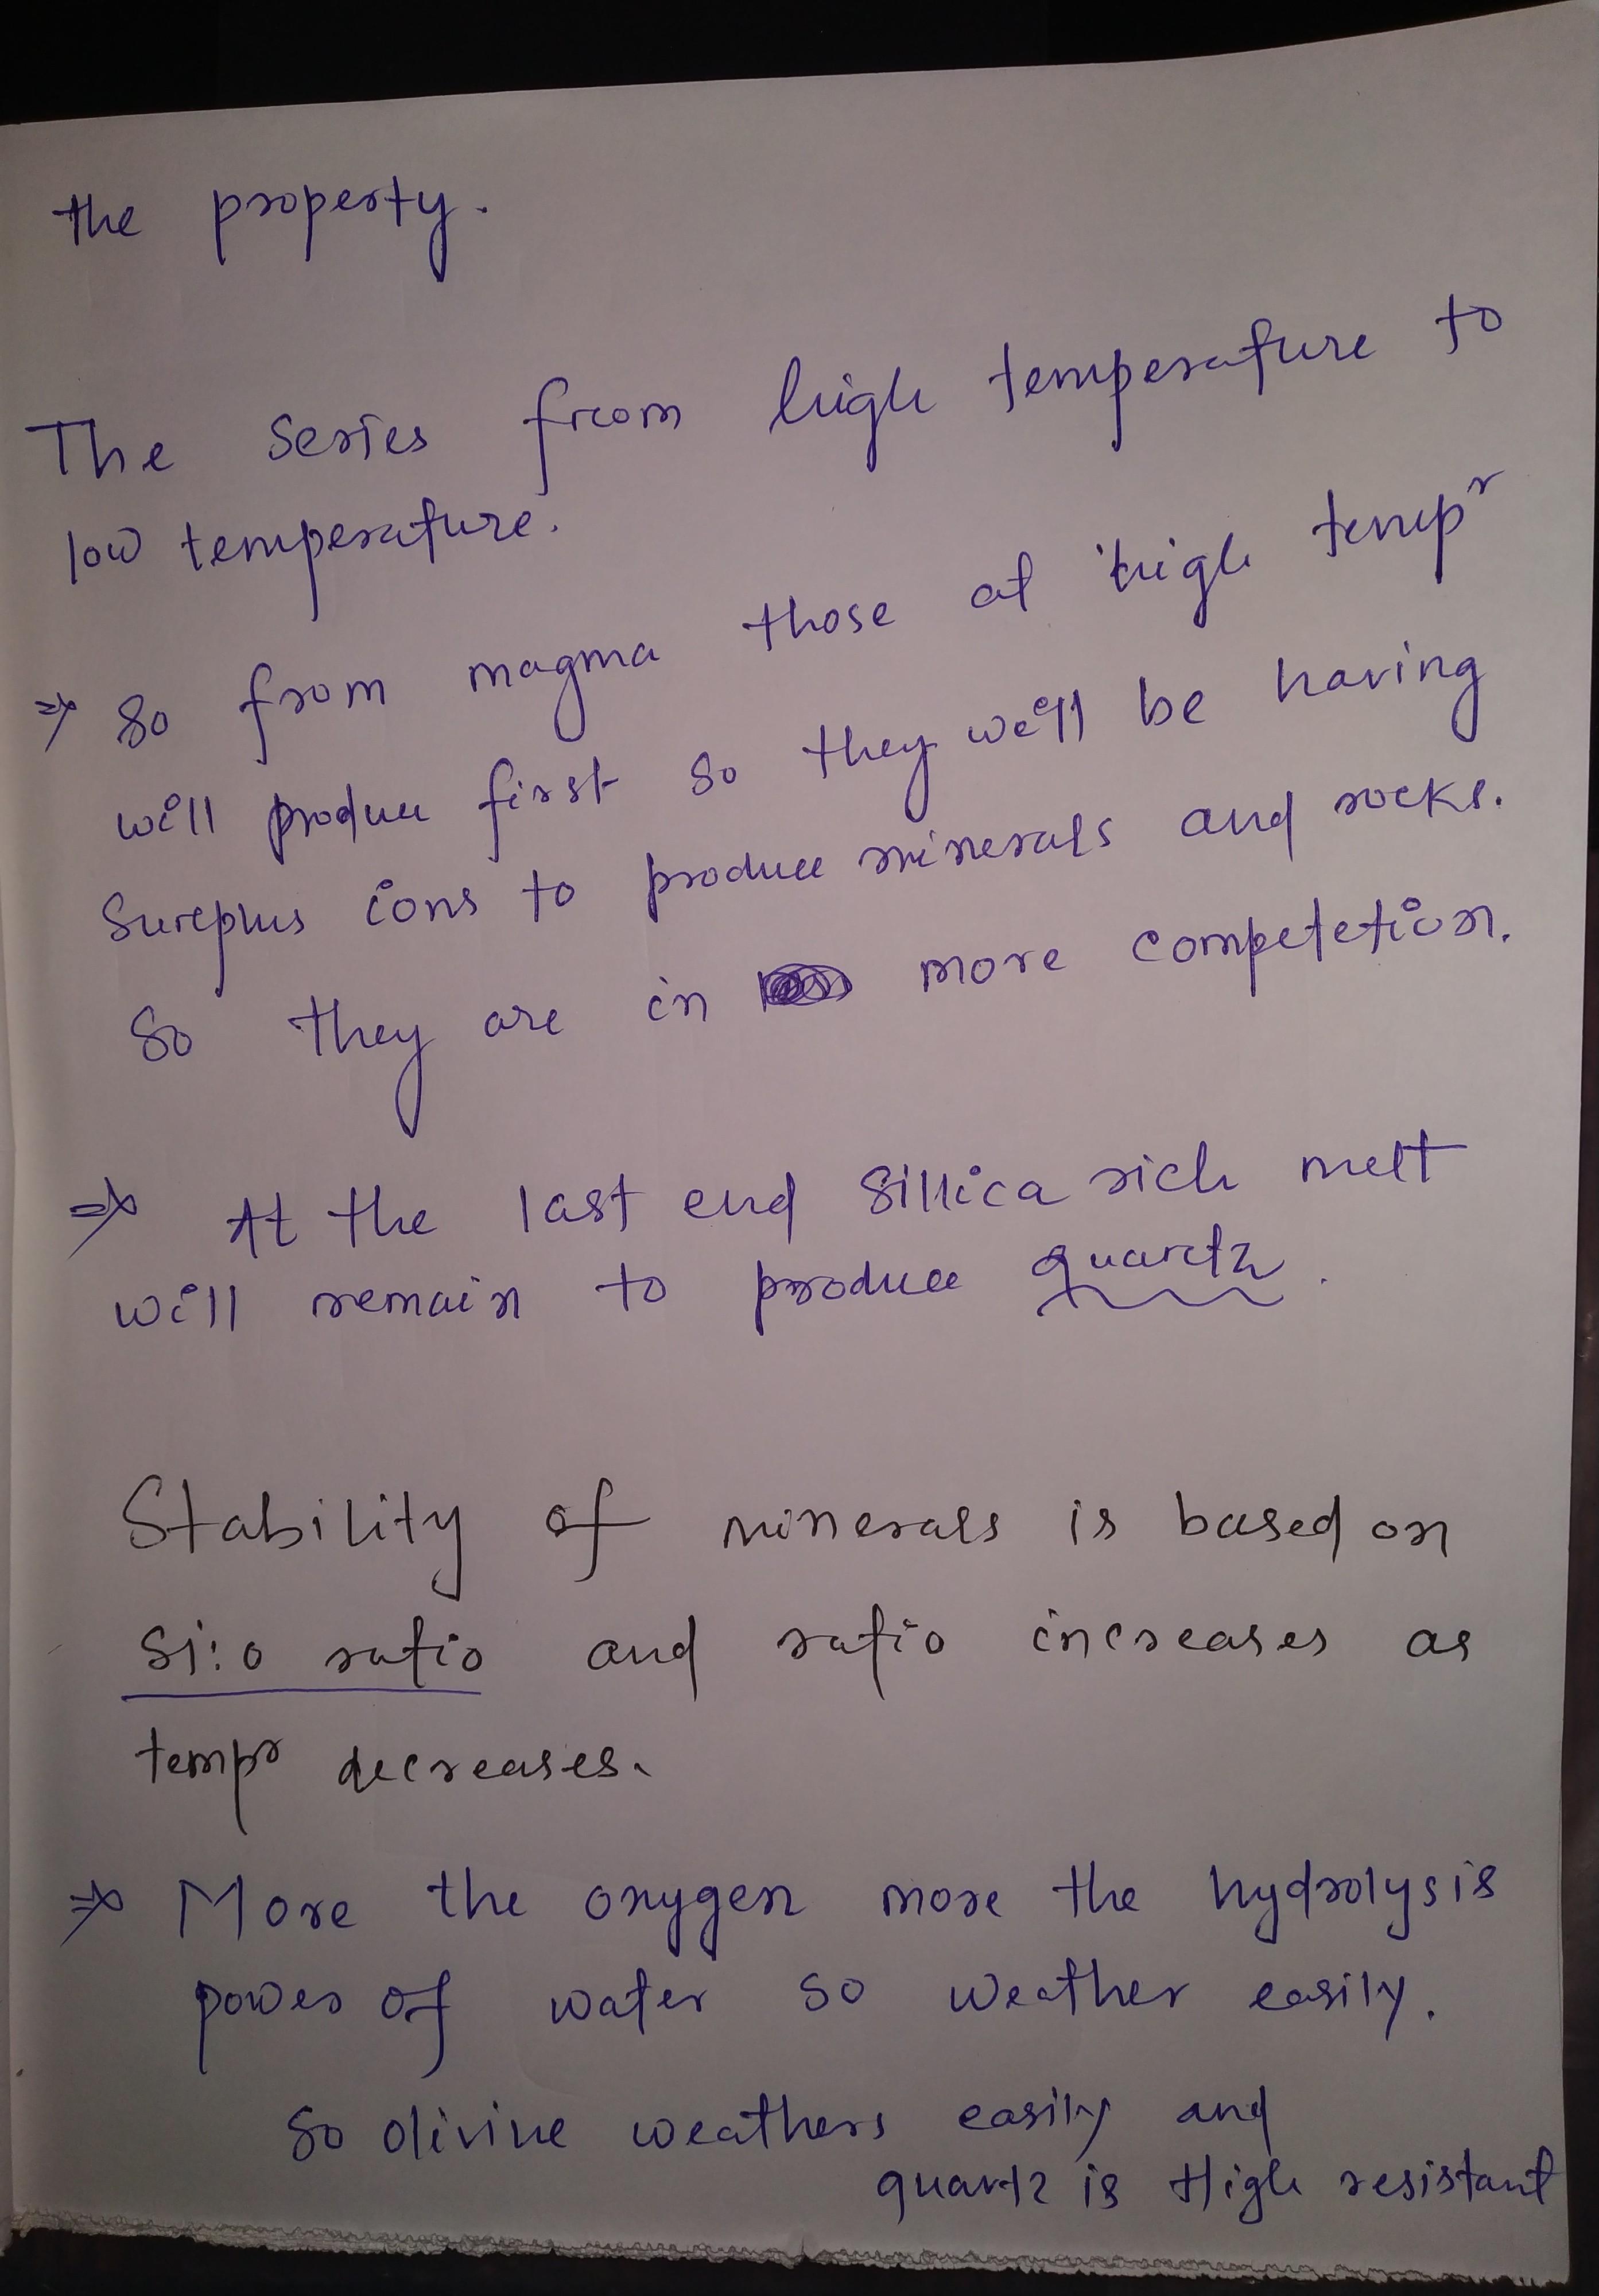 the property.
The series from high temperature to
low temperature.
⇒ So from magma those at high tempr
will produce first so they will be having
Surplus ions to produce minerals and rocks.
So they are in more competetion.
⇒ At the last end Sillica rich melt
will remain to produce quartz.
Stability of minerals is based on
Si:O ratio and ratio increases as
tempr decreases.
⇒ More the oxygen more the hydrolysis
power of water so weather easily.
So olivine weathers easily and
quartz is High resistant